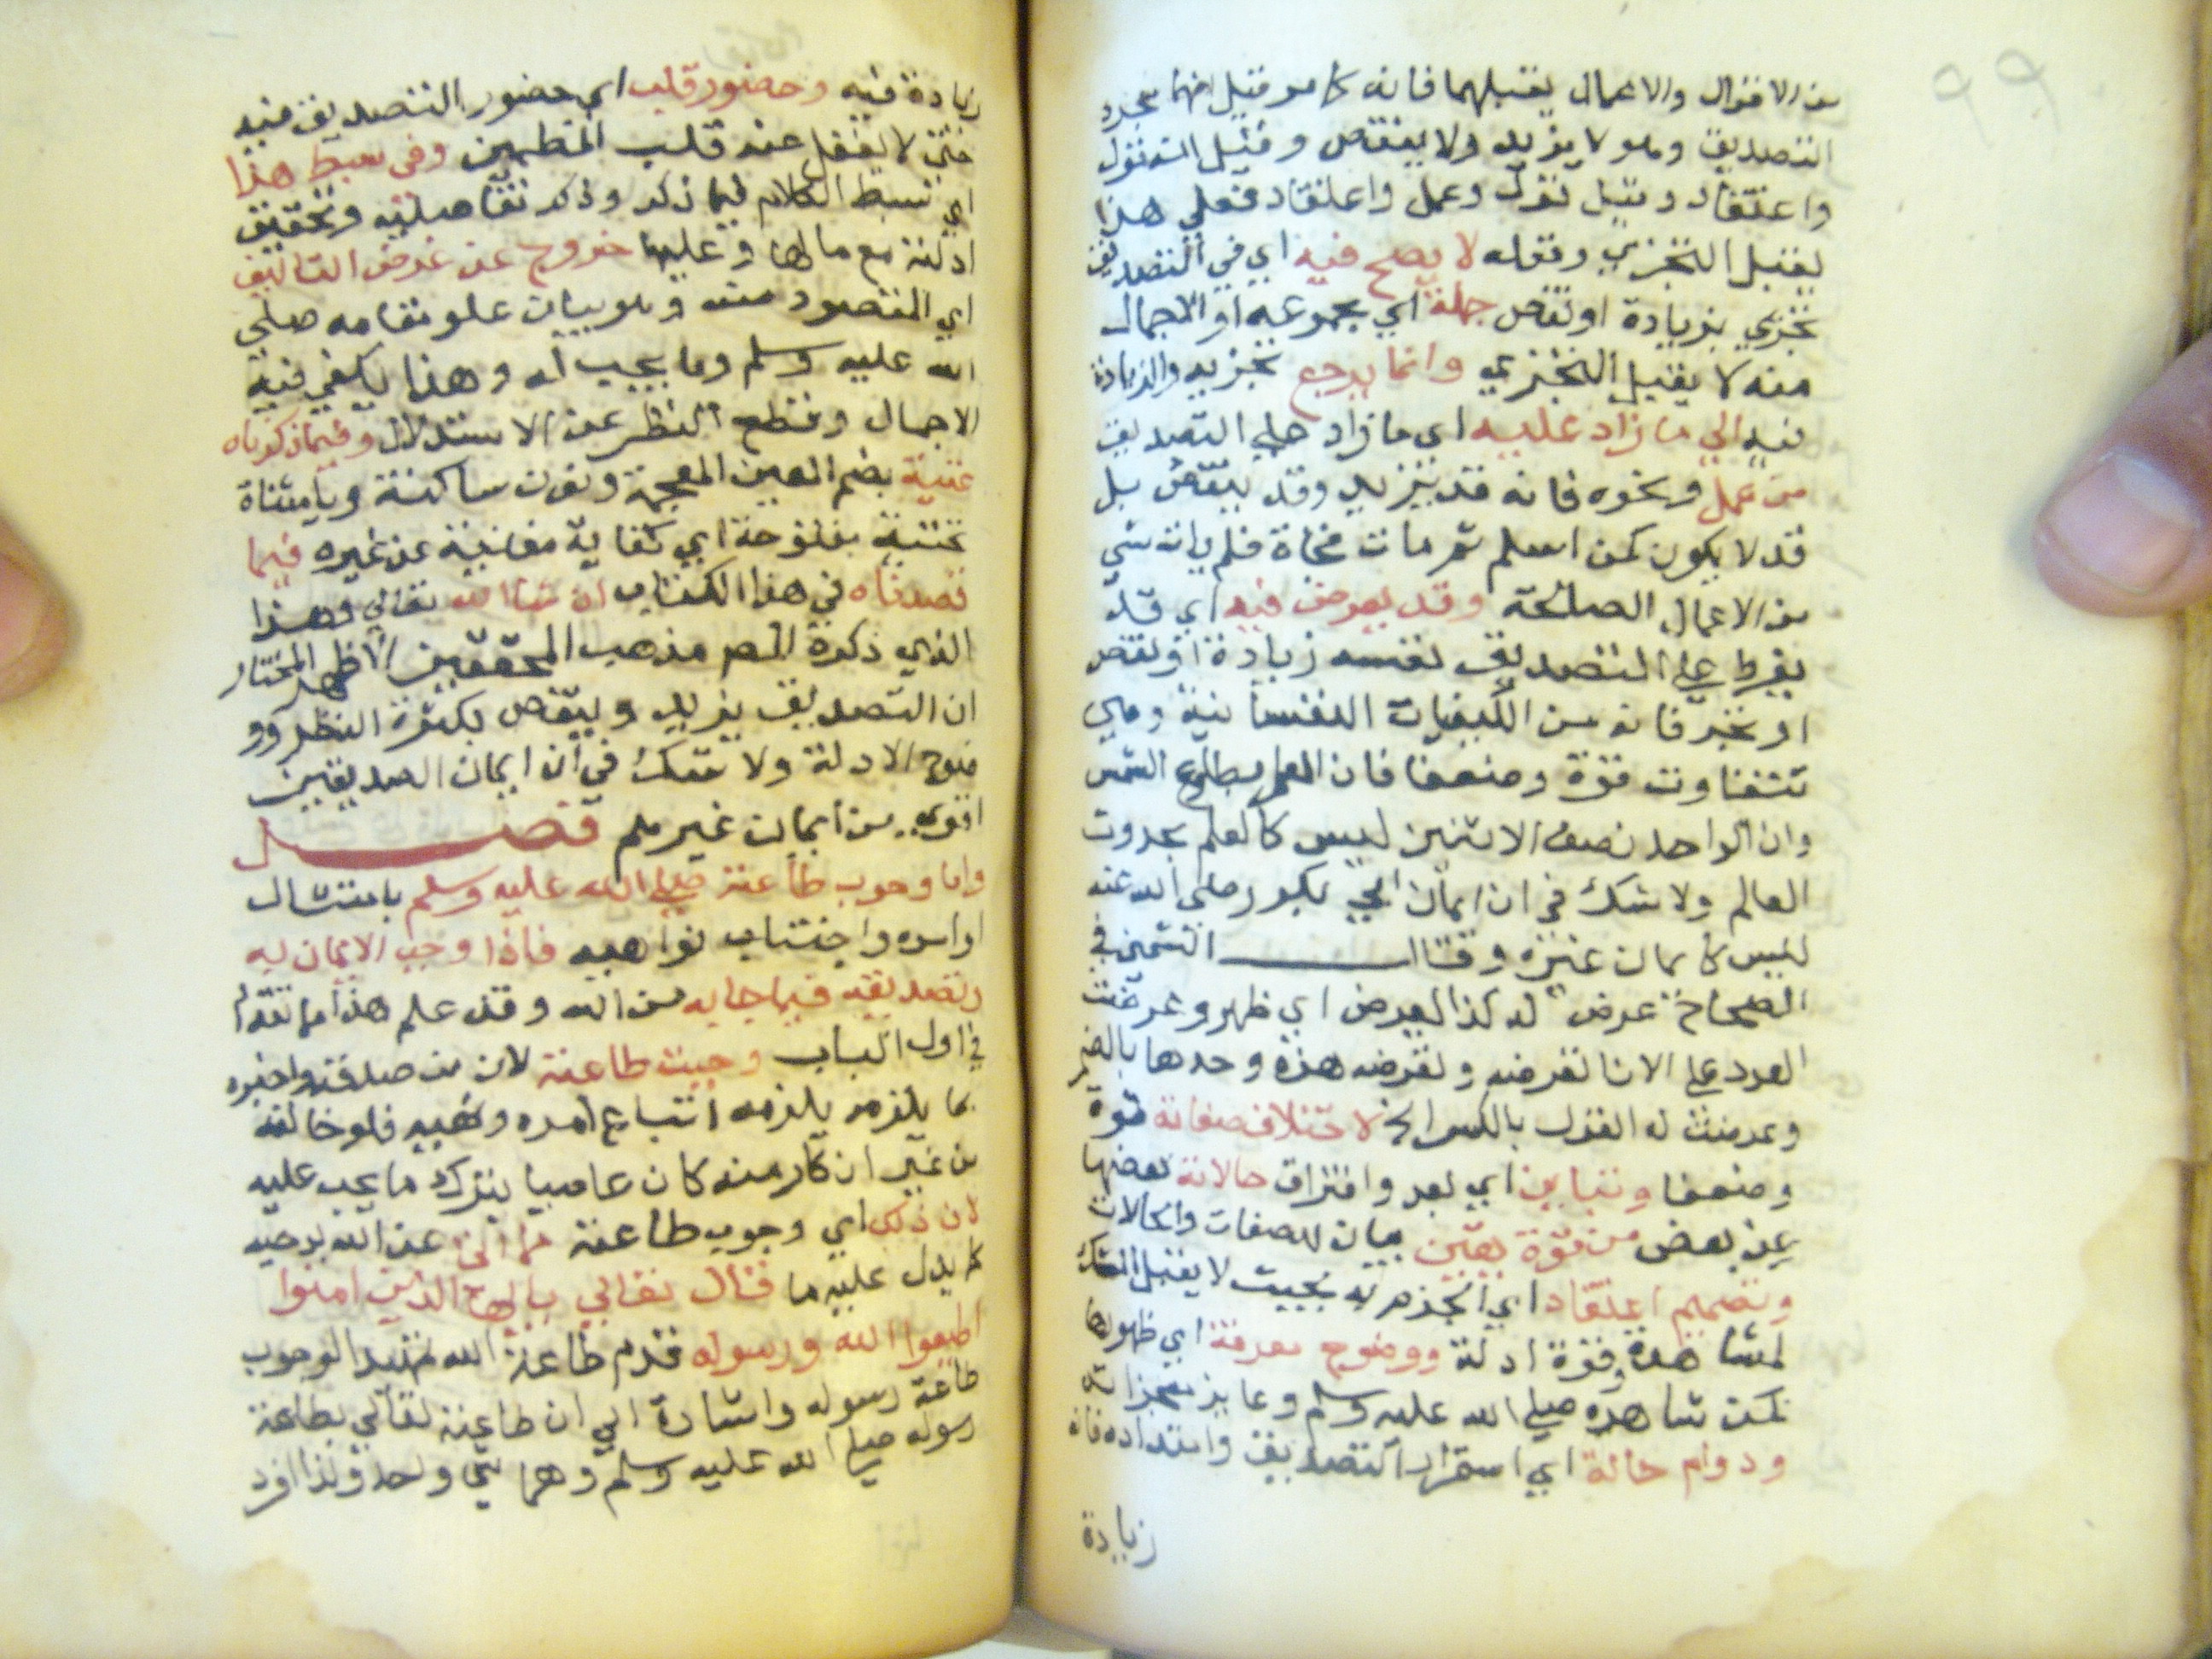 ٩٩
من الاقوال والاعمال يقبلهما فانه كما مر قيل انهما مجرد
التصديق وهو لا يزيد ولا ينقص وقيل انه قول
واعتقاد وقيل قول وعمل واعتقاد فعلى هذا
يقبل التجزي وقوله لا يصح فيه اي في التصديق
تجزي بزيادة او نقص جملة اي بمجموعه او الاجمال
منه لا يقبل التجزي وانما يرجع تجزيه والزيادة
فيه الي ما زاد عليه اي ما زاد علي التصديق
من عمل ونحوه فانه قد يزيد وقد ينقص بل
قد لا يكون كمن اسلم ثم مات فجاة فلم يات بشي
من الاعمال الصالحة وقد يعرض فيه اي قد
يفرط علي التصديق نفسه زيادة او نقص
او تجز فانه من الكيفيات النفسانية وهي
تتفاوت قوة وضعفا فان العلم بطلوع الشمس
وان الواحد نصف الاثنين ليس كالعلم بحدوث
العالم ولا شك في ان ايمان ابي بكر رضي الله عنه
ليس كايمان غيره وقال الشمني في
الصحاح عرض له كذا يعرض اي ظهر وعرضت
العود علي الانا تعرضه وتعرضه هذه وحدها بالضم
وعرضت له الغول بالكسر الخ لاختلاف صفاته قوة
وضعفا وتباين اي بعد وافتراق حالاته بعضها
عن بعض من قوة يقين بيان للصفات والحالات
وتصميم اعتقاد اي الجزم به بحيث لا يقبل الشك
لمشاهدة وقوة ادلة ووضوح معرفة اي ظهورها
كمن شاهده صلي الله عليه وسلم وعاين معجزاته
ودوام حالة اي استمرار التصديق وامتداده فانه
زيادة
زيادة فيه وحضور قلب اي حضور التصديق فيه
حتي لا يغفل عنه قلب المطمئن وفي بسط هذا
اي بسط الكلام فيما ذكر وذكر تفاصيله وتحقيق
ادلته مع مالها وعليها خروج عن غرض التاليف
اي المقصود منه وهو بيان علو مقامه صلي
الله عليه وسلم وما يجب له وهذا يكفي فيه
الاجمال وقطع النظر عن الاستدلال وفيما ذكرناه
غنية بضم الغين المعجمة ونون ساكنة ويا مثناة
تحتية مفتوحة اي كفاية مغنية عن غيره فيما
قصدناه في هذا الكتاب ان شا الله تعالي وهذا
الذي ذكره المص مذهب المحققين الاظهر المختار
ان التصديق يزيد وينقص بكثرة النظر وو
ضوح الادلة ولا شك في ان ايمان الصديقين
اقوي من ايمان غيرهم فصل
واما وجوب طاعته صلي الله عليه وسلم بامتثال
اوامره واجتناب نواهيه فاذا وجب الايمان به
وتصديقه فيما جا به من الله وقد علم هذا مما تقدم
في اول الباب وجبت طاعته لان من صدقته واخبره
بما يلزمه يلزمه اتباع امره ونهيه فلو خالفه
من غير انكار منه كان عاصيا بترك ما يجب عليه
لان ذلك اي وجوب طاعته مما اتي عن الله بوحيه
كما يدل عليه ما قال تعالي يا ايها الذين امنوا
اطيعوا الله ورسوله قدم طاعة الله تمهيدا لوجوب
طاعة رسوله واشارة الي ان طاعته تعالي بطاعة
رسوله صلي الله عليه وسلم وهما شي واحد ولذا افرد